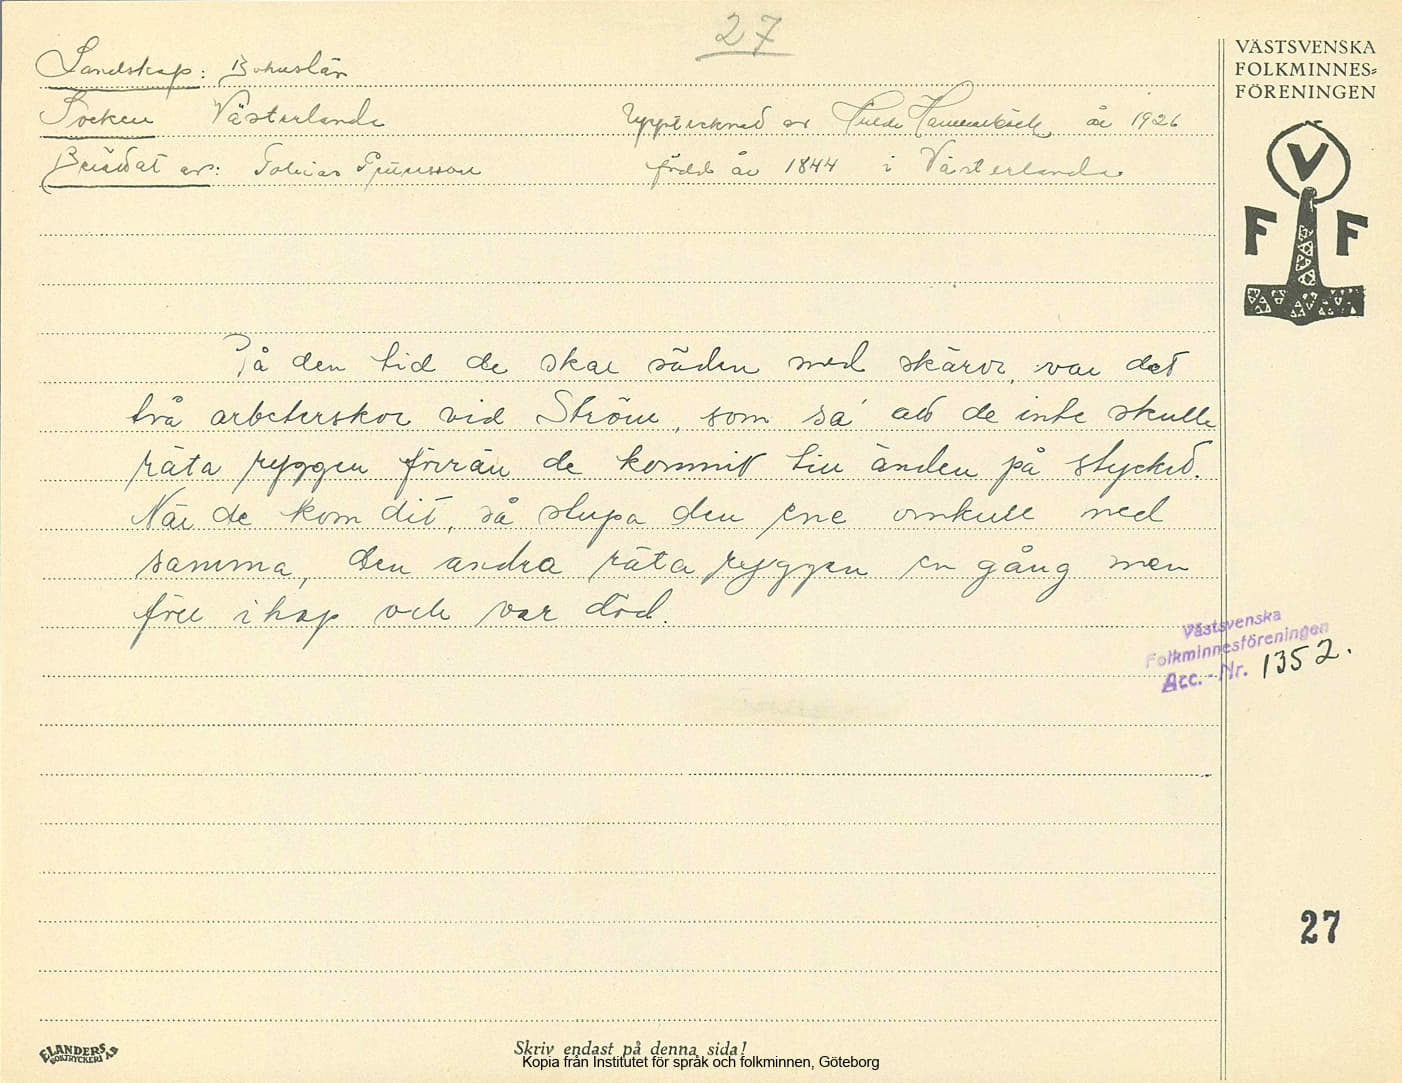 27
VÄSTSVENSKA
FOLKMINNES=
FÖRENINGEN
Landskap: Bohuslän
Socken Västerlanda Upptecknad av Hulda Hammarbäck år 1926
Berättat av: Tobias född år 1844 i Västerlanda
V
F F
På den tid de skar säden med skäror, var det
två arbeterskor vid Ström, som sa' att de inte skulle
räta ryggen förrän de kommit till änden på stycket.
När de kom dit, så stupa den ene omkull med
samma, den andra räta ryggen en gång men
föll ihop och var död.
Västsvenska
Folkminnesföreningen
Acc.-Nr. 1352.
27
ELANDERS
BOKTRYCKERI AB
Skriv endast på denna sida!
Kopia från Institutet för språk och folkminnen, Göteborg